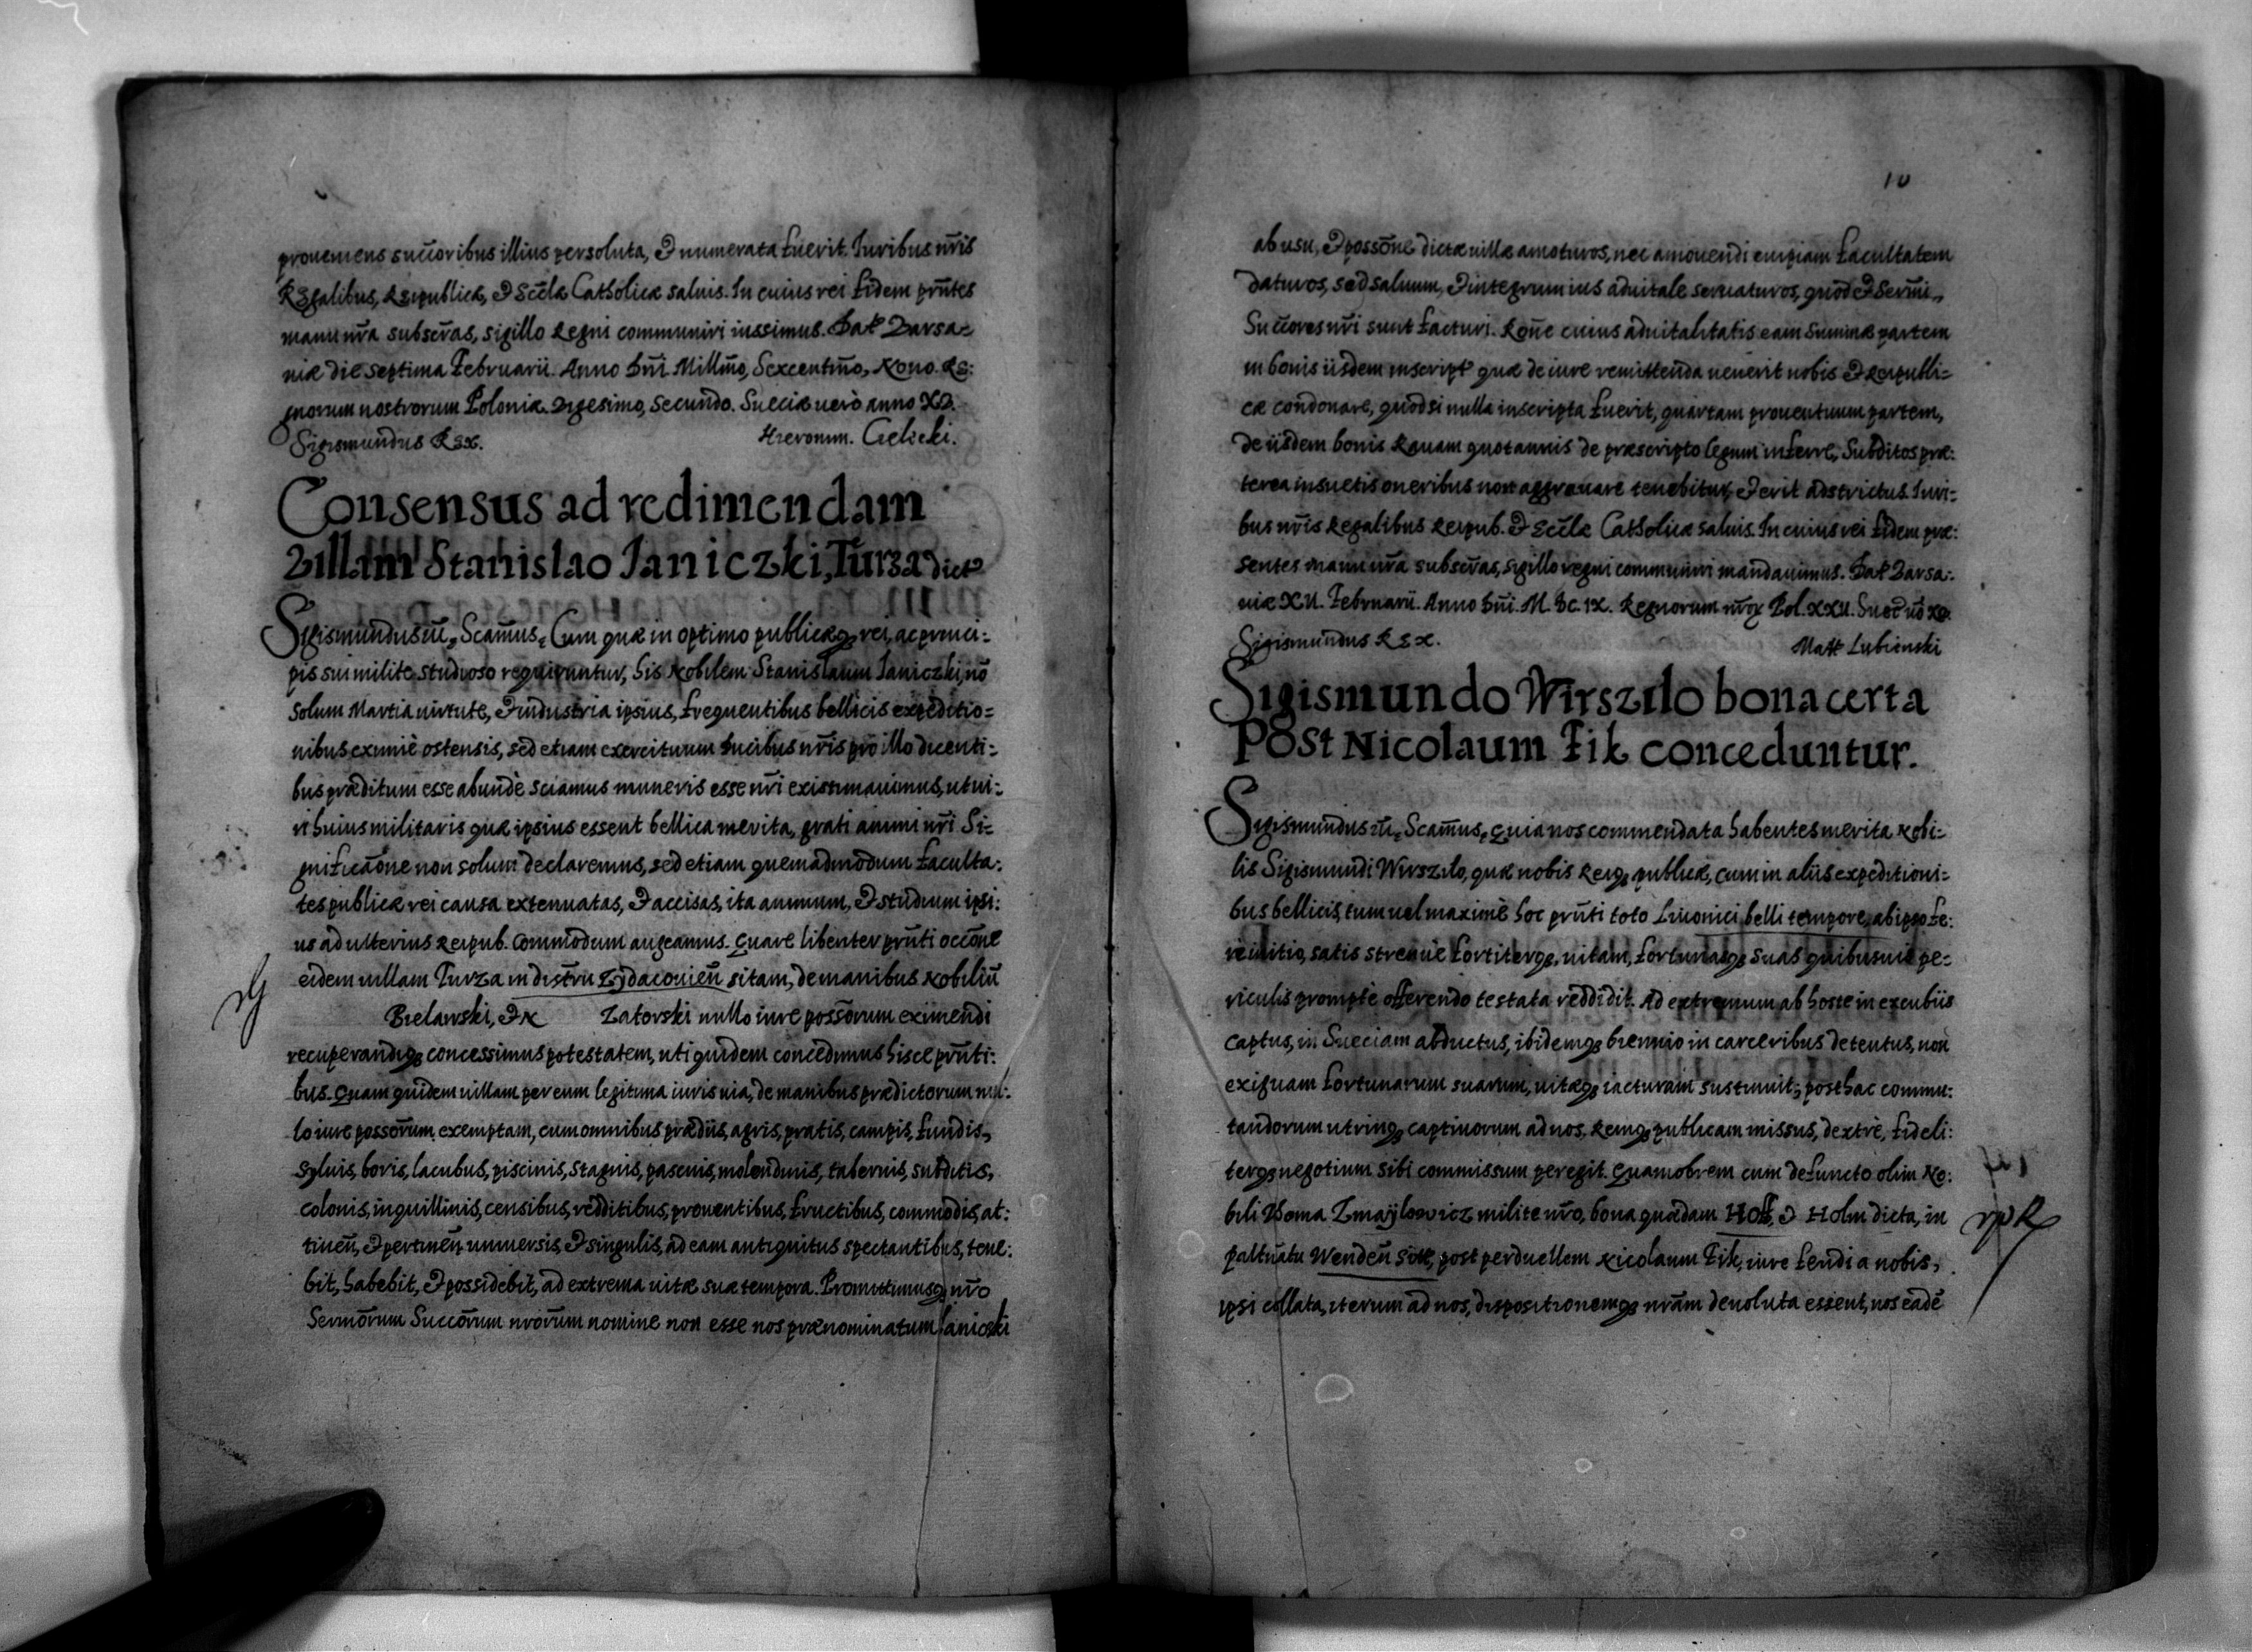 proueniens succoribus illius persoluta, et numerata fuerit. Iuribus nris
Regalibus, Reipublicæ, et Eccle Catholicæ saluis. In cuius rei fidem prntes
manu nra subscras, sigillo Regni communiri iussimus. Dat Varsa-
uiæ die septima Februarii. Anno Dni Millmo, Sexcentmo, Nono. Re:
gnorum nostrorum Poloniæ. Vigesimo, Secundo. Sueciæ uerò anno XV.
Sigismundus Rex. Hieronim. Cielecki.
Consensus ad redimendam
Villam Stanislao Janiczki, Turza dict
Sigismundus iii, Scamus, Cum quæ in optimo publicæq rei, ac princi:
pis sui milite studioso requiruntur, his Nobilem Stanislaum Janiczki, nõ
solum Martia uirtute, et industria ipsius, frequentibus bellicis expeditio=
nibus eximiè ostensis, sed etiam exercituum Ducibus nris pro illo dicenti:
bus præditum esse abundè sciamus muneris esse nri existimauimus, ut ui:
ri huius militaris quæ ipsius essent bellica merita, grati animi nri Si=
gnificaone non solum declaremus, sed etiam quemadmodum faculta:
tes publicæ rei causa extenuatas, et accisas, ita animum, et studium ipsi:
us ad ulterius Reipub. commodum augeamus. Quare libenter prnti occone
eidem uillam Turza in distru Zydacouien sitam, de manibus Nobiliũ
Bielawski, et N Zatorski nullo iure possorum eximendi
recuperandiq concessimus potestatem, uti quidem concedimus hisce prnti:
bus. Quam quidem uillam per eum legitima iuris uia, de manibus prædictorum nul:
lo iure possorum exemptam, cum omnibus prædiis, agris, pratis, campis, fundis,
syluis, boris, lacubus, piscinis, stagnis, pascuis, molendinis, tabernis, subditis,
colonis, inquillinis, censibus, redditibus, prouentibus, fructibus, commodis, at:
tinen, et pertinen uniuersis, et singulis, ad eam antiquitus spectantibus, tene:
bit, habebit, et possidebit, ad extrema uitæ suæ tempora. Promittimusq nro
Sermorum Succorum nrorum nomine non esse nos prænominatum Janicski
10
ab usu, et possone dictæ uillæ amoturos, nec amouendi cuipiam facultatem
daturos, sed saluum, et integrum ius aduitale seruaturos, quod et Sermi,
Succores nri sunt facturi. Rone cuius aduitalitatis eam Summæ partem
in bonis iisdem inscript quæ de iure remittenda uenerit nobis et Reipubli=
cæ condonare, quod si nulla inscripta fuerit, quartam prouentuum partem,
de iisdem bonis Rauam quotannis de præscripto legum inferre, Subditos præ:
terea insuetis oneribus non aggrauare tenebitur, et erit adstrictus. Iuri=
bus nris Regalibus Reipub. et Eccle Catholicæ saluis. In cuius rei fidem præ:
sentes manu nra subscras, sigillo regni communiri mandauimus. Dat Varsa:
uiæ XII. Februarii. Anno Dni. M. DC. IX. Regnorum nror Pol. XXII. Suec uo XV.
Sigismundus Rex. Matt Lubienski
Sigismundo Wirszilo bona certa
Post Nicolaum Fik conceduntur.
Sigismundus iii, Scamus, Quia nos commendata habentes merita Nobi:
lis Sigismundi Wirszilo, quæ nobis Reiq publicæ, cum in aliis expeditioni=
bus bellicis, tum uel maximè hoc prnti toto Liuonici belli tempore, ab ipso fe:
re initio, satis strenuè fortiterq, uitam, fortunasq suas quibusuis pe:
riculis promptè offerendo testata reddidit. Ad extremum ab hoste in excubiis
captus, in Sueciam abductus, ibidemq biennio in carceribus detentus, non
exiguam fortunarum suarum, uitæq iacturam sustinuit; posthac commu:
tandorum utrinq captiuorum ad nos, Remq publicam missus, dextrè, fideli:
terq negotium sibi commissum peregit. Quamobrem cum defuncto olim No:
bili Thoma Zmaylowicz milite nro, bona quædam Hoff, et Holm dicta, in
paltinatu Wenden sitæ, post perduellem Nicolaum Fik, iure feudi a nobis,
ipsi collata, iterum ad nos, dispositionemq nram deuoluta essent, nos eadẽ